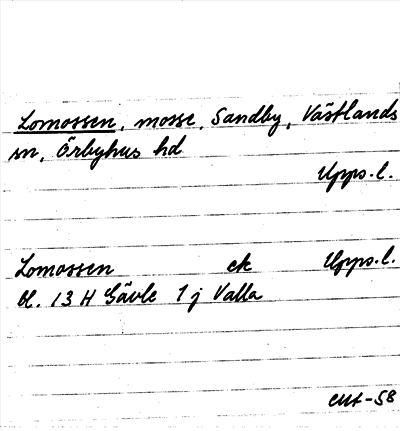 Lomossen, mosse, Sandby, Västlands
sn, Örbyhus hd
Upps.l.
Lomossen ek Upps.l.
bl. 13 H Gävle 1 j Valla
CHt-58